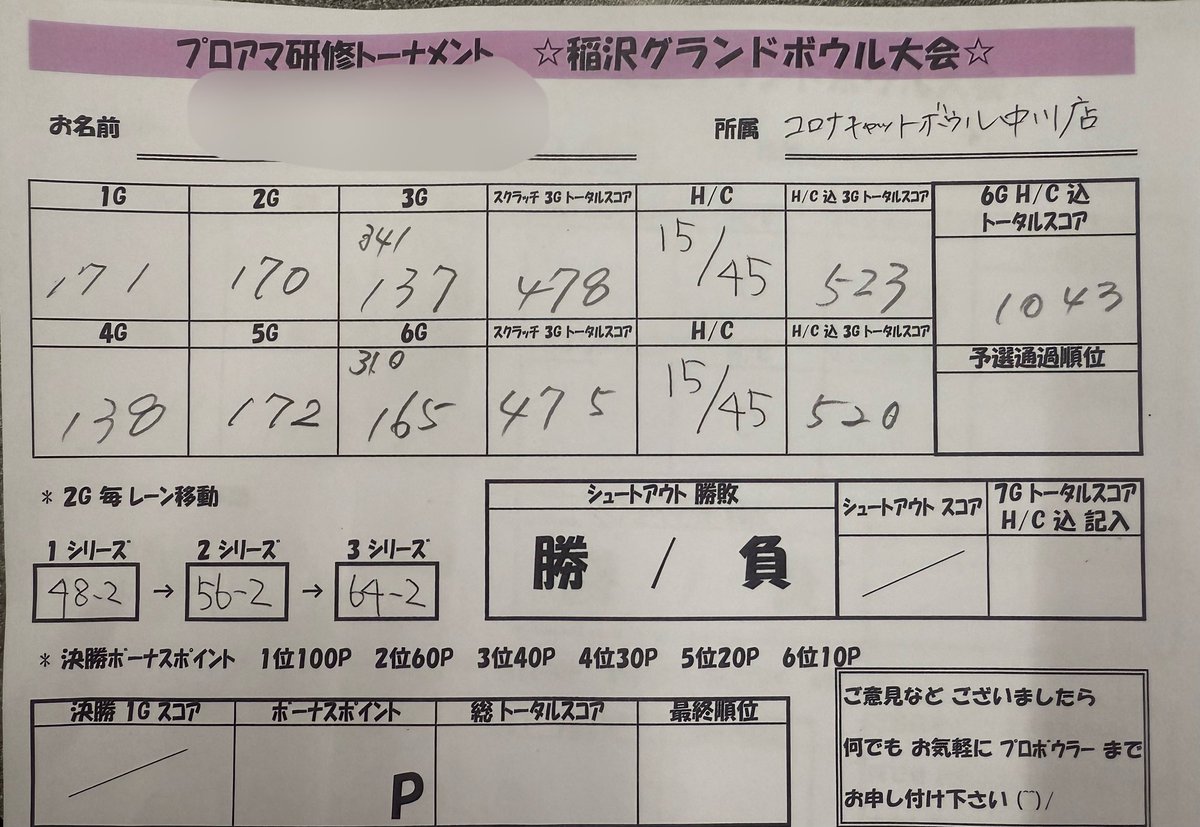 プロアマ研修トーナメント ☆稲沢グランドボウル大会☆
お名前
所属 コロナキャットボウル中川店
1G 2G 3G スクラッチ 3G トータルスコア H/C H/C 込 3G トータルスコア 6G H/C 込
トータルスコア
341
171 170 137 478 15/45 523 1043
4G 5G 6G スクラッチ 3G トータルスコア H/C H/C 込 3G トータルスコア 予選通過順位
310
138 172 165 475 15/45 520
* 2G 毎 レーン移動
シュートアウト 勝敗 シュートアウト スコア 7G トータルスコア
H/C 込 記入
1 シリーズ 2 シリーズ 3 シリーズ
48-2 → 56-2 → 64-2
勝 / 負
* 決勝ボーナスポイント 1位100P 2位60P 3位40P 4位30P 5位20P 6位10P
決勝 1G スコア ボーナスポイント 総 トータルスコア 最終順位
P
ご意見など ございましたら
何でも お気軽に プロボウラー まで
お申し付け下さい (^^)/